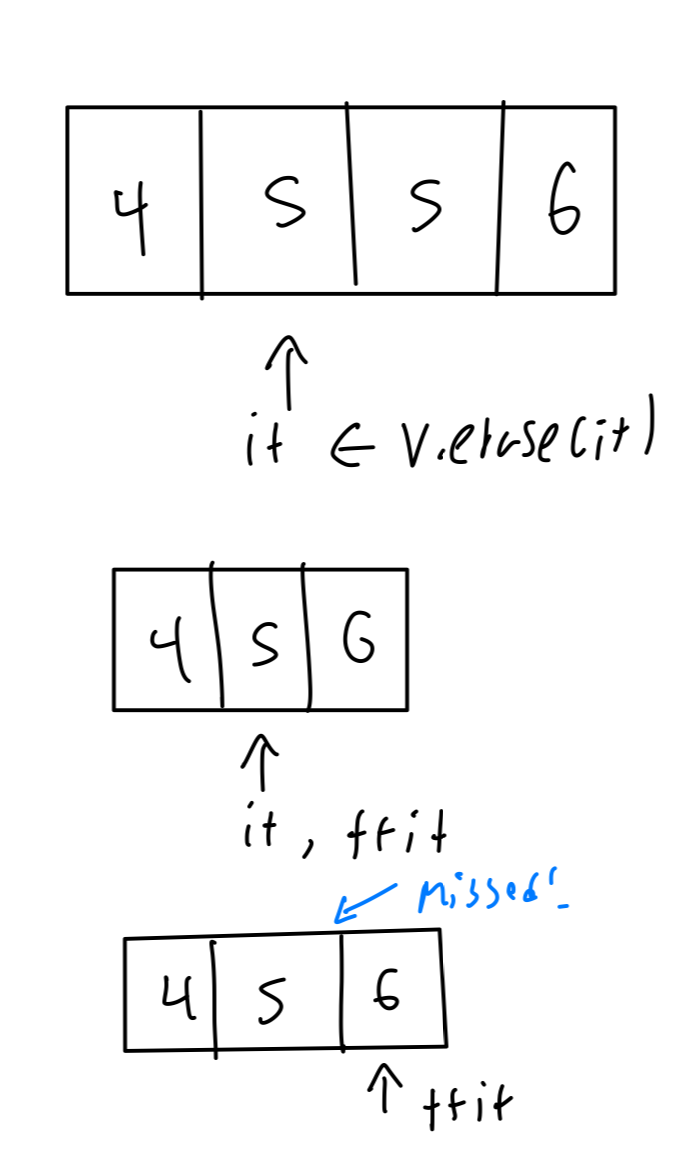 4 5 5 6
it ← v.erase(it)
4 5 6
it, ++it
missed!
4 5 6
++it